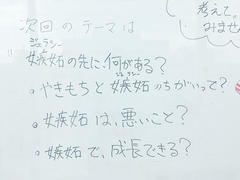 考えて。
みません
次回のテーマは
ジェラシー
嫉妬の先に、何がある?
ジェラシー
・やきもちと嫉妬のちがいって?
・嫉妬は、悪いこと?
・嫉妬で、成長できる?